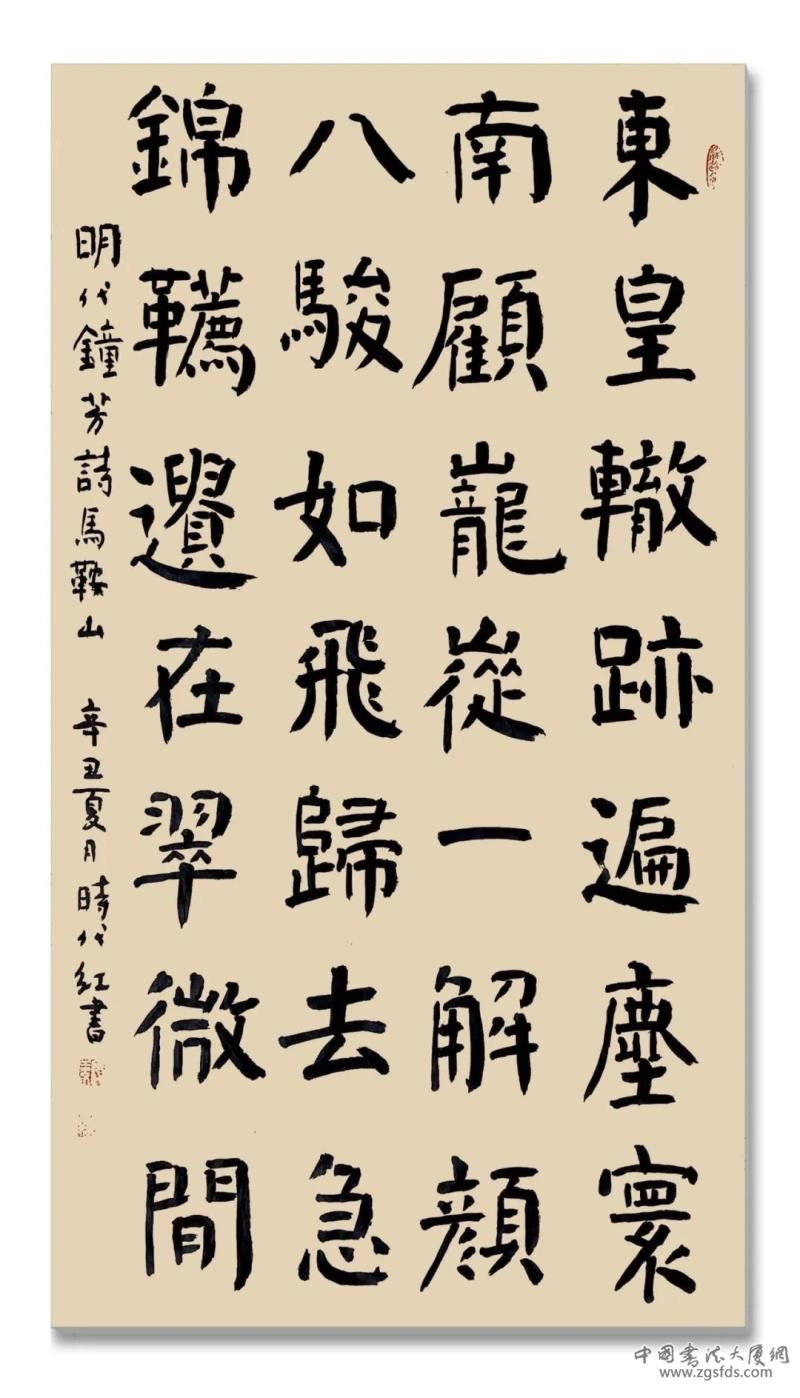 東皇轍跡遍塵寰
南顧巃嵸一解顔
八駿如飛歸去急
錦韉遺在翠微間
明代鐘芳詩馬鞍山 辛丑夏月時代紅書
中国書法大厦網
www.zgsfds.com